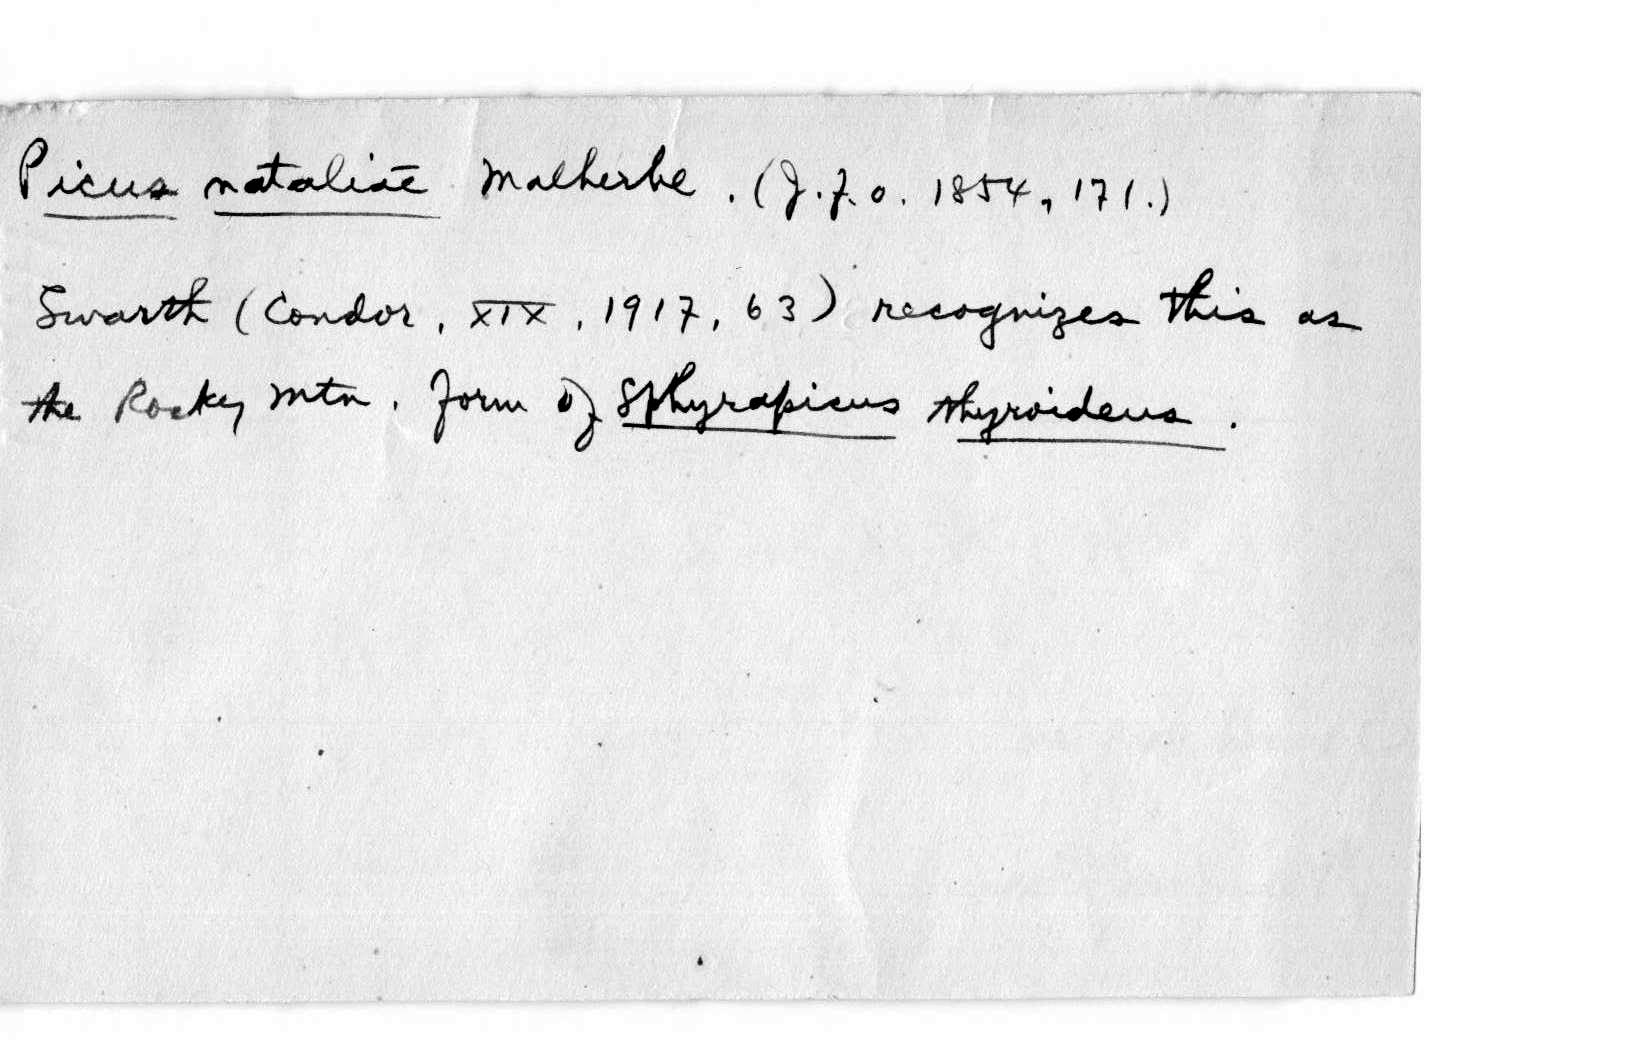 Picus nataliae Malherbe. (J.f.o. 1854, 171.)
Swarth (Condor, XIX, 1917, 63) recognizes this as
the Rocky Mtn. form of Sphyrapicus thyroideus.